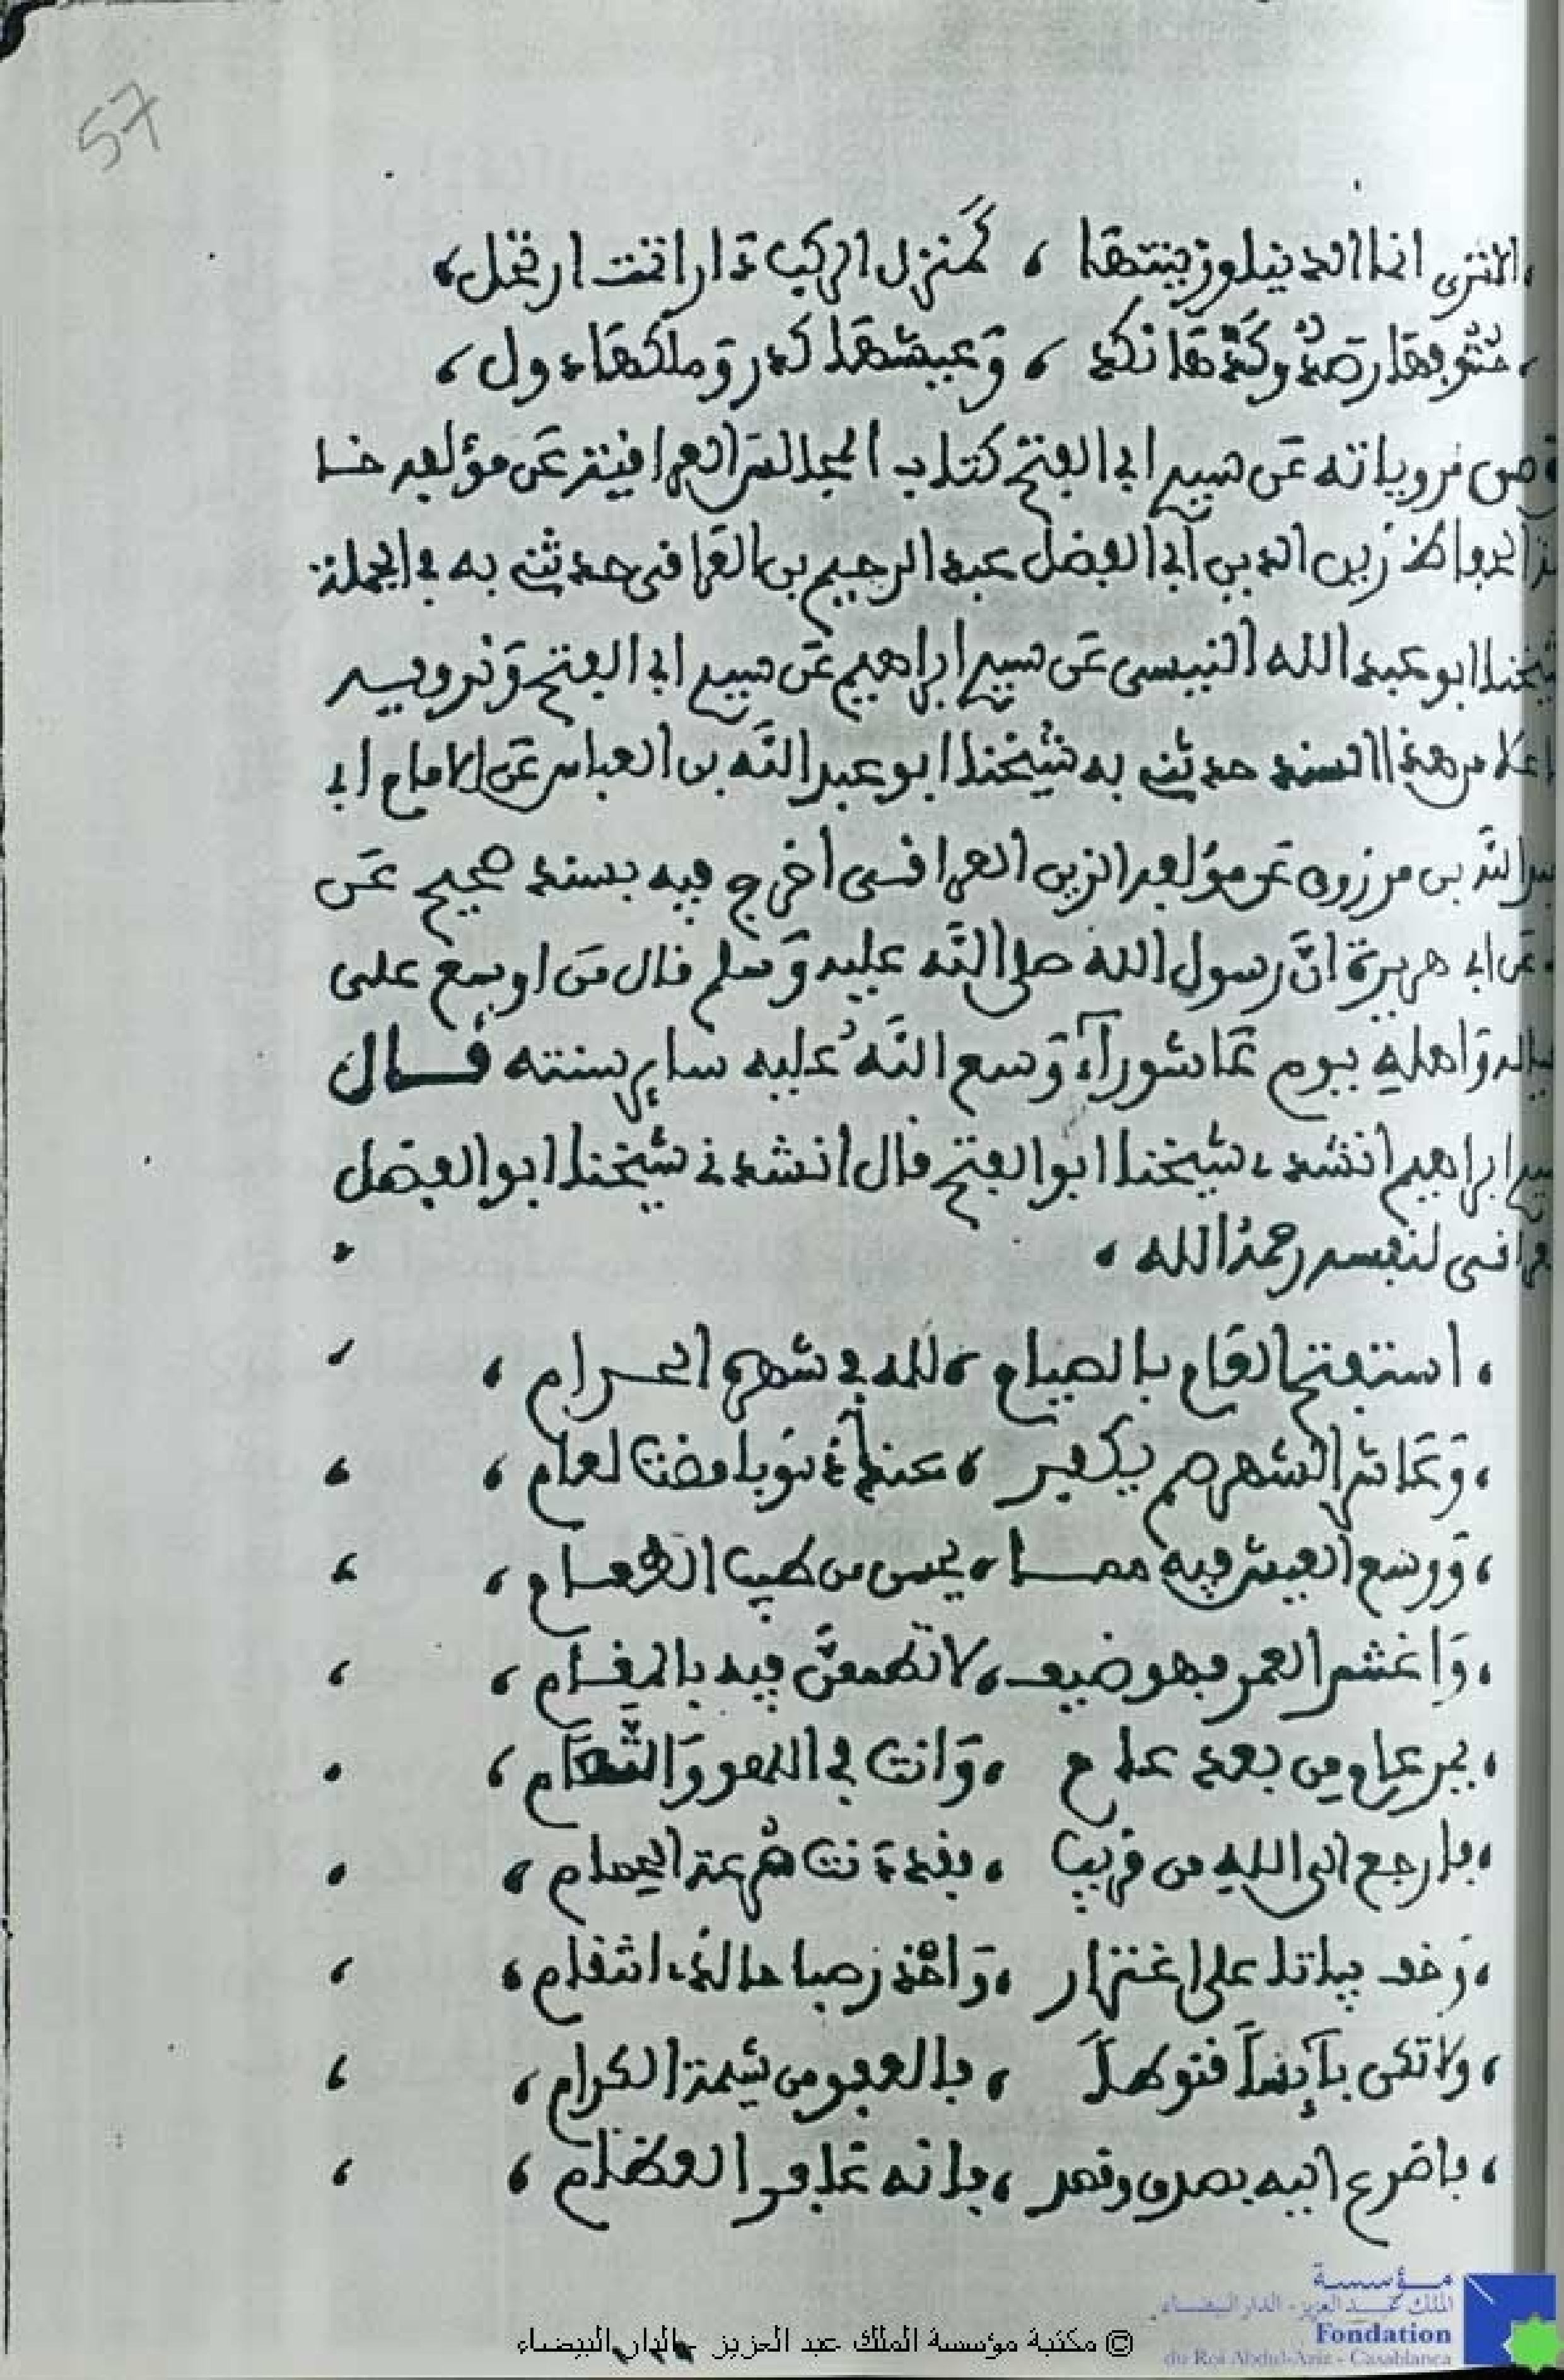 57
، الا ترى انما الدنيا وزينتها ، كمنزل الركب دارا ثمت ارتحل ،
، حتوفها رصد وكدها نكد ، وعيشها كدر وملكها دول ،
ومن مروياته عن سيدي ابي الفتح كتاب المجالس العراقية عن مؤلفه
الحافظ زين الدين ابي الفضل عبد الرحيم بن العراقي حدثني به في الجملة
شيخنا ابو عبد الله التبسي عن سيدي ابراهيم عن سيدي ابي الفتح ونرويه
اعلا من هذا السند حدثني به شيخنا ابو عبد الله بن العباس عن الامام ابي
عبد الله بن مرزوق عن مؤلفه الزين العراقي اخرج فيه بسند صحيح عن
عن ابي هريرة ان رسول الله صلى الله عليه وسلم قال من اوسع على
عياله واهله يوم عاشوراء وسع الله عليه ساير سنته قال
سيدي ابراهيم انشدني شيخنا ابو الفتح قال انشدني شيخنا ابو الفضل
العراقي لنفسه رحمه الله ،
، استفتح العام بالصيام ، لله في شهره الحرام ،
، وعاشر الشهر صم يكفر ، عنك ذنوبا مضت لعام ،
، ووسع العيش فيه مما ، يحسن من طيب الطعام ،
، واغتنم العمر فهو ضيف ، لا تطمعن فيه بالمقام ،
، يمر عام من بعد عام ، وانت في اللهو والتعام ،
، فارجع الى الله من قريب ، فقد دنت شرعة الحمام ،
، وخف بياتا على اغترار ، واحذر صباحا لذي انتقام ،
، ولا تكن بآيسا قنوطا ، فالعفو من شيمة الكرام ،
، فاضرع اليه بصدق وعد ، فانه غافر العظام ،
مؤسسة
الملك عبد العزيز - الدار البيضاء
Fondation
du Roi Abdul-Aziz - Casablanca
© مكتبة مؤسسة الملك عبد العزيز - الدار البيضاء